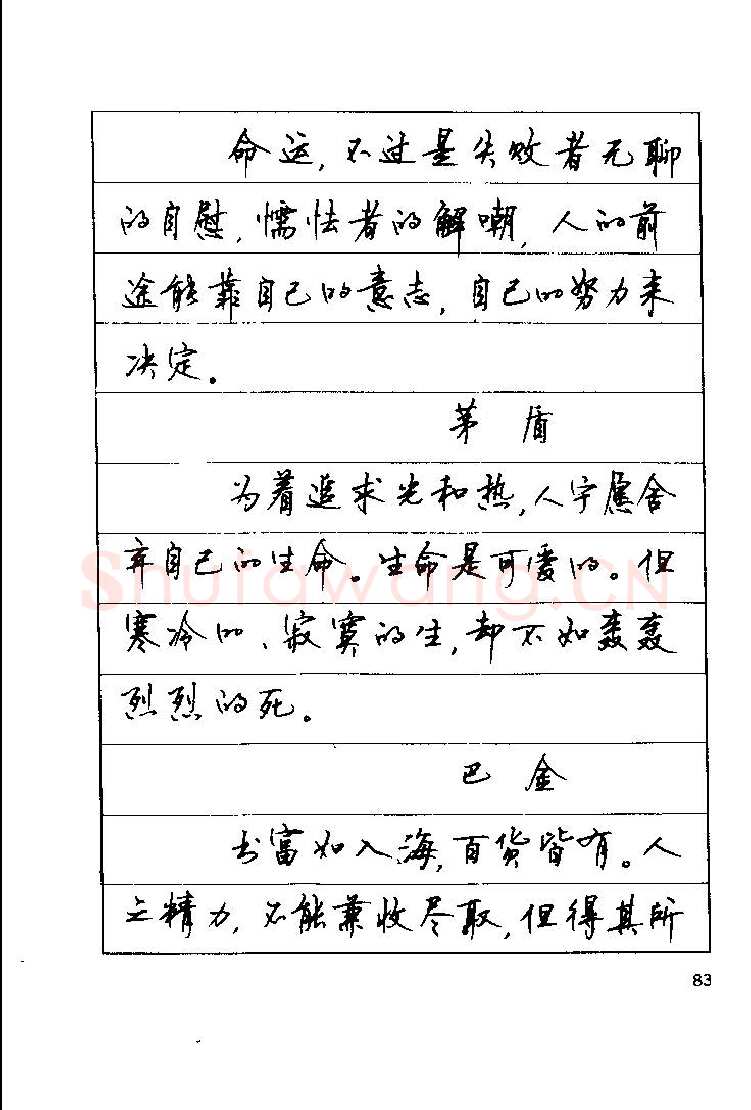 命运，不过是失败者无聊
的自慰，懦怯者的解嘲，人的前
途能靠自己的意志，自己的努力来
决定。
茅盾
为着追求光和热，人宁愿舍
弃自己的生命。生命是可爱的。但
寒冷的、寂寞的生，却不如轰轰
烈烈的死。
巴金
书富如入海，百货皆有。人
之精力，不能兼收尽取，但得其所
83
Shufawang.CN